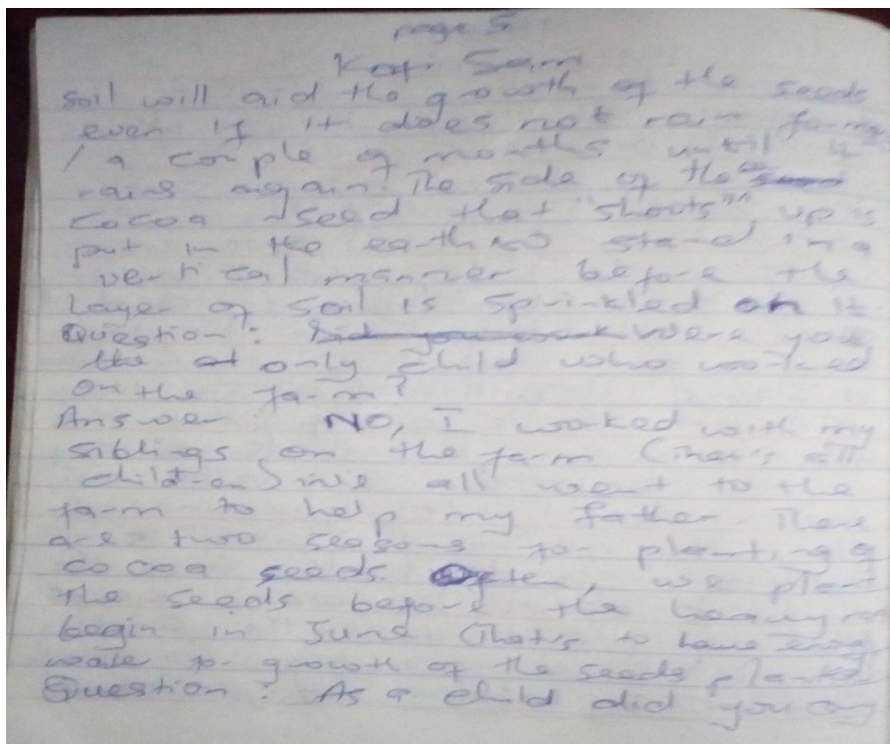 page 5
Kofi Sam
soil will aid the growth of the seeds
even if it does not rain for my
/ a couple of months until it
rains again. The side of the
cocoa seed that "shoots" up is
put in the earth to stand in a
vertical manner before the
layer of soil is sprinkled on it
Question: Did you work Were you
the only child who worked
on the farm?
Answer: NO, I worked with my
siblings on the farm (that's all
children) we all went to the
farm to help my father. There
are two seasons for planting of
cocoa seeds. Often, we plant
the seeds before the heavy
begin in June (that's to have enog
wate for growth of the seeds planted
Question: As a child did you any